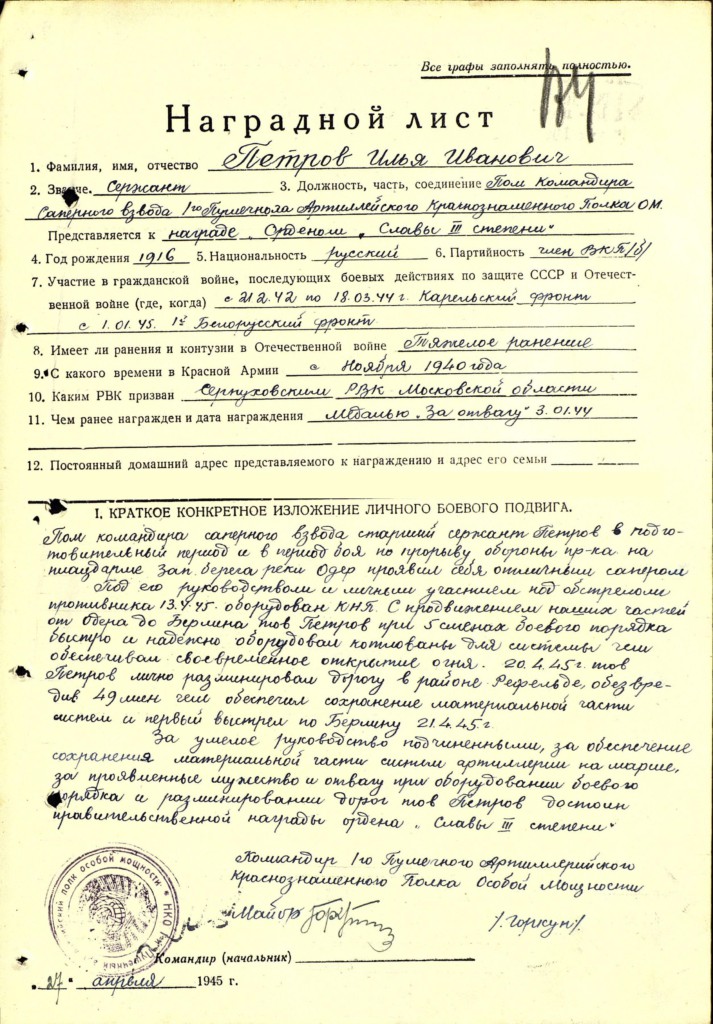 Все графы заполнять полностью.
Наградной лист
1. Фамилия, имя, отчество Петров Илья Иванович
2. Звание. Сержант 3. Должность, часть, соединение Пом Командира
Саперного взвода 1го Пушечного Артиллейского Краснознаменного Полка ОМ.
Представляется к награде „Орденом „Славы III степени"
4. Год рождения 1916 5. Национальность русский 6. Партийность член ВКП/б/
7. Участие в гражданской войне, последующих боевых действиях по защите СССР и Отечест-
венной войне (где, когда) с 21.2.42 по 18.03.44 г. Карельский фронт
с 1.01.45. 1й Белорусский фронт
8. Имеет ли ранения и контузии в Отечественной войне Тяжелое ранение
9. С какого времени в Красной Армии с Ноября 1940 года
10. Каким РВК призван Серпуховским РВК Московской области
11. Чем ранее награжден и дата награждения Медалью „За отвагу" 3.01.44
12. Постоянный домашний адрес представляемого к награждению и адрес его семьи
I. КРАТКОЕ КОНКРЕТНОЕ ИЗЛОЖЕНИЕ ЛИЧНОГО БОЕВОГО ПОДВИГА.
Пом командира саперного взвода старший сержант Петров в подго-
товительный период и в период боя по прорыву обороны пр-ка на
плацдарме зап. берега реки Одер проявил себя отличным сапером
Под его руководством и личным участием под обстрелом
противника 13.4.45. оборудован КНП. С продвижением наших частей
от Одера до Берлина тов Петров при 5 сменах боевого порядка
быстро и надежно оборудовал котлованы для системы чем
обеспечивал своевременное открытие огня. 20.4.45 г. тов
Петров лично разминировал дорогу в районе Рефельде, обезвре-
див 49 мин чем обеспечил сохранение материальной части
систем и первый выстрел по Берлину 21.4.45 г.
За умелое руководство подчиненными, за обеспечение
сохранения материальной части систем артиллерии на марше,
за проявленные мужество и отвагу при оборудовании боевого
порядка и разминировании дорог тов Петров достоин
правительственной награды ордена „Славы III степени"
Командир 1го Пушечного Артиллерийского
Краснознаменного Полка Особой Мощности
Майор /Горкун/.
Командир (начальник)
„27" апреля 1945 г.
полк особой мощности * НКО